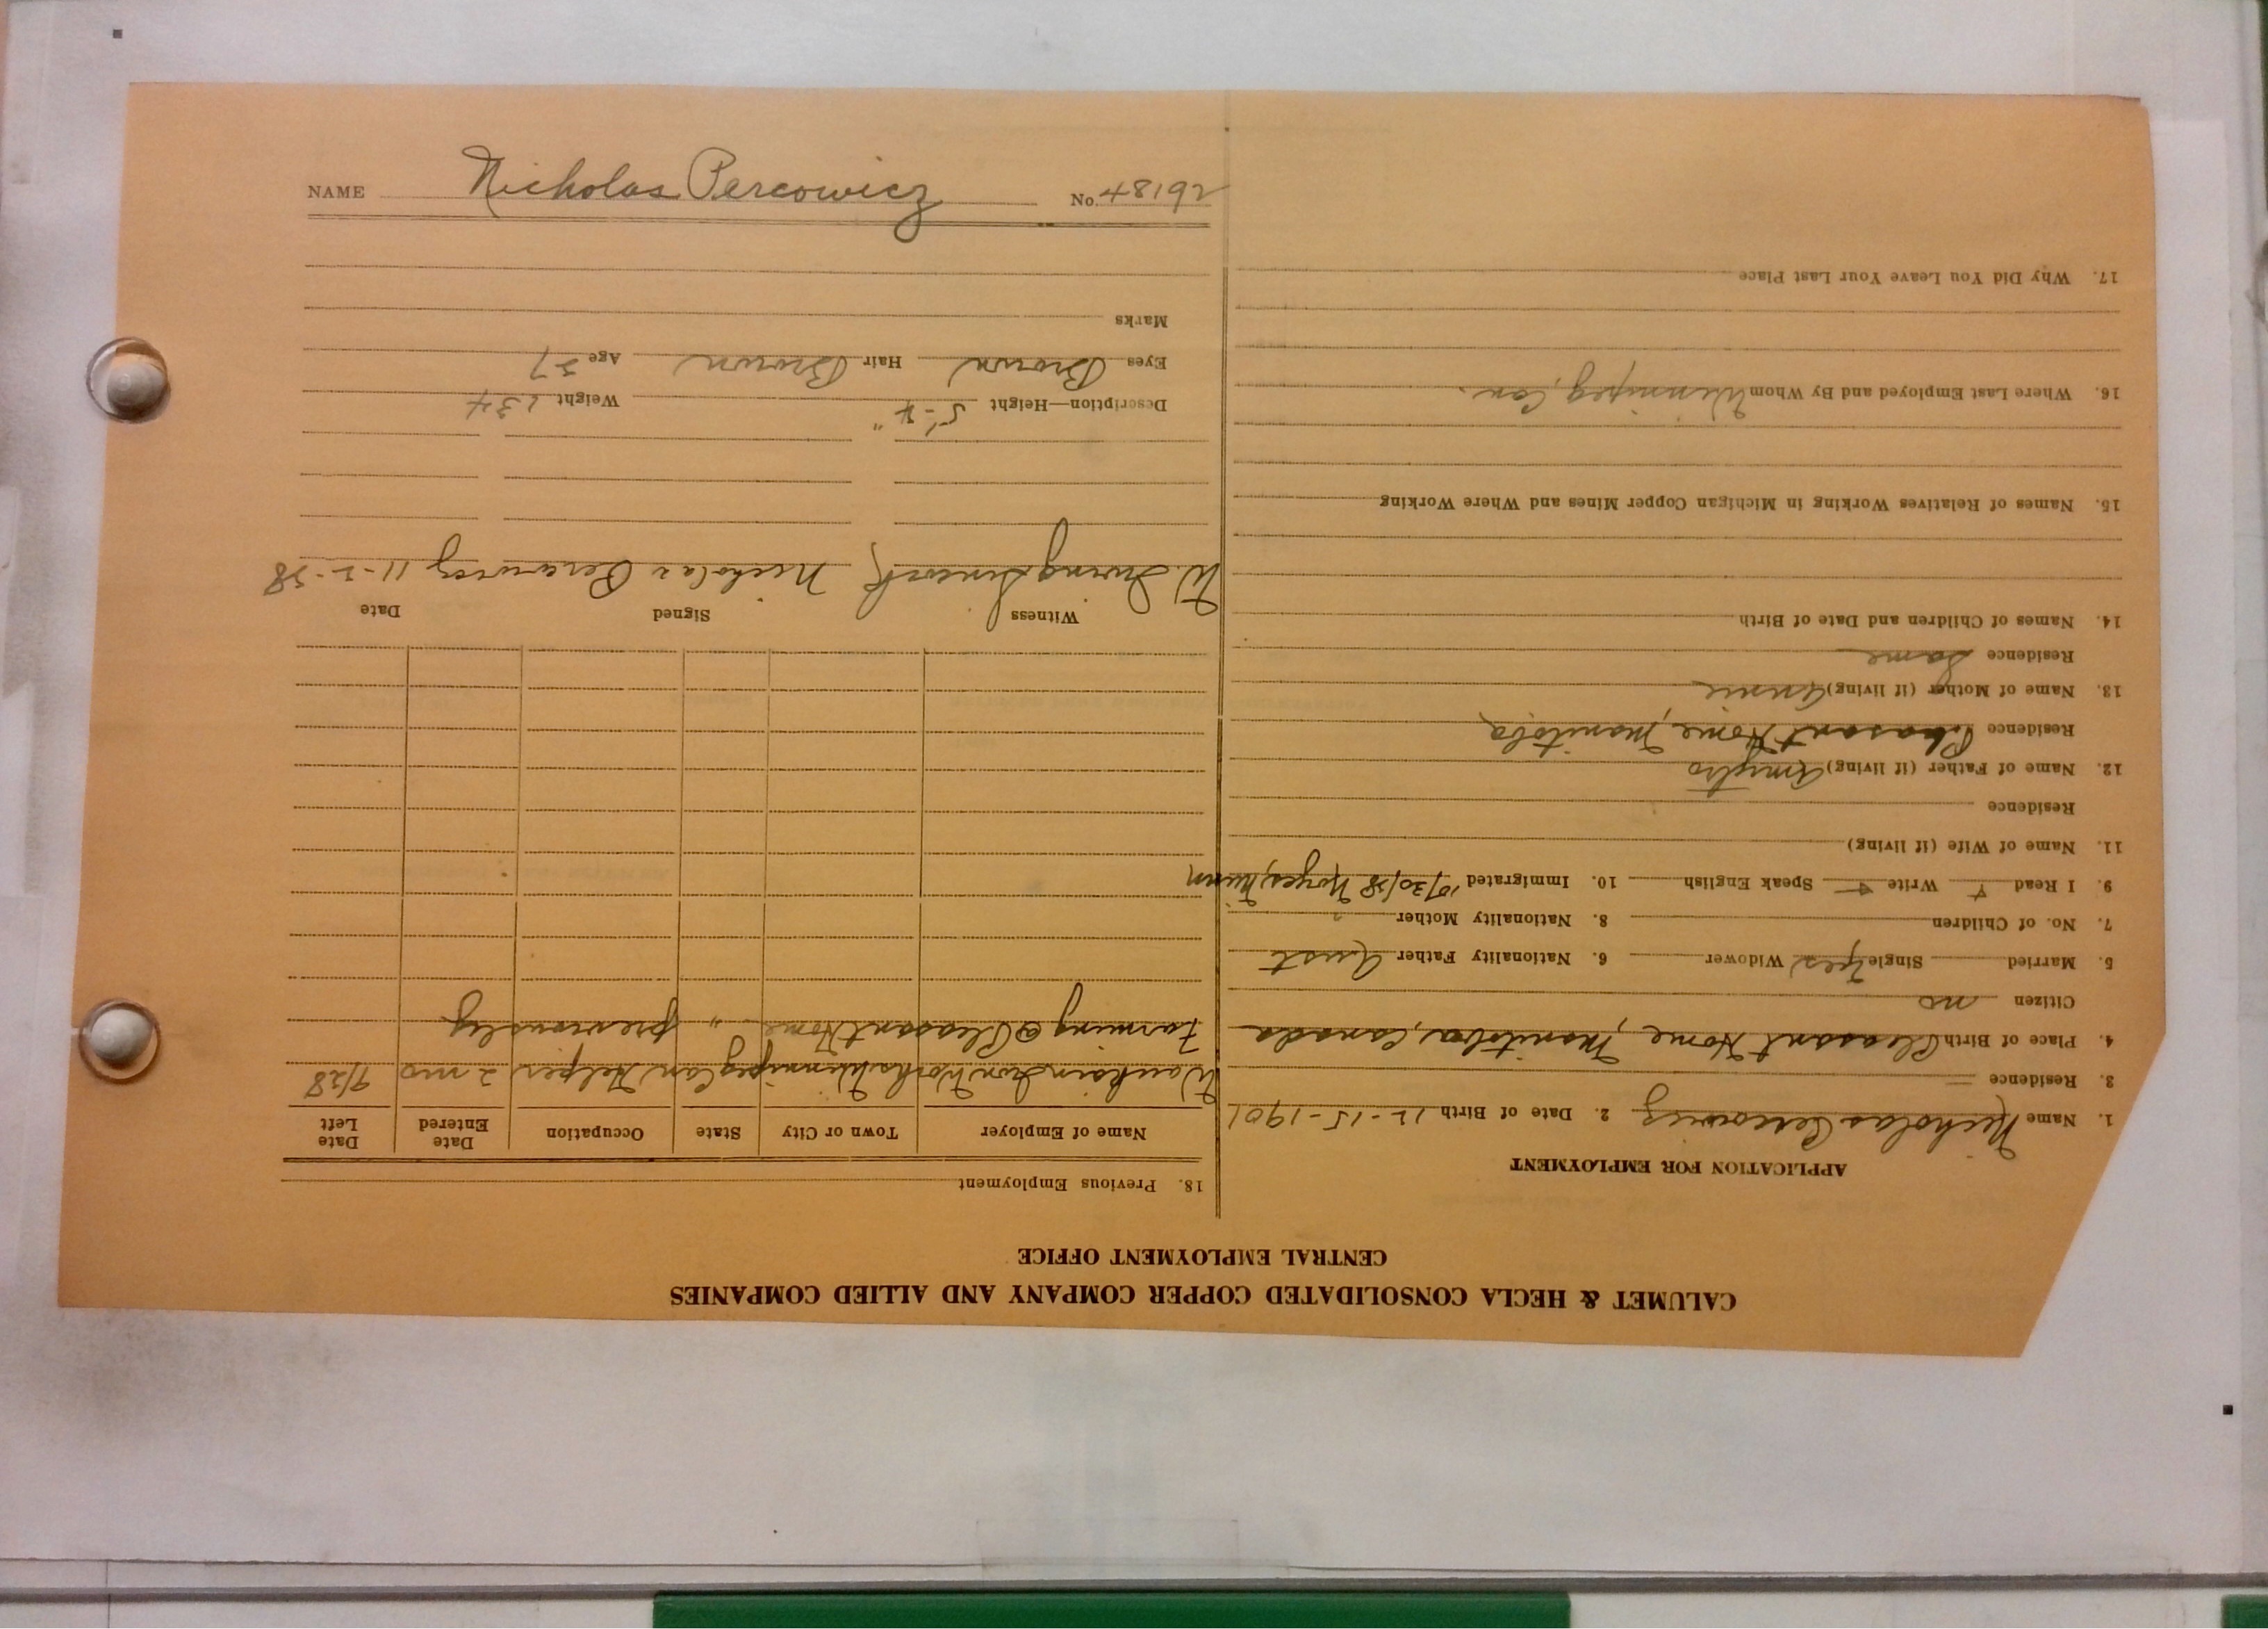 NAME Nicholas Percowicz No. 48192
CALUMET & HECLA CONSOLIDATED COPPER COMPANY AND ALLIED COMPANIES
CENTRAL EMPLOYMENT OFFICE
APPLICATION FOR EMPLOYMENT
1. Name Nicholas Percowicz 2. Date of Birth 12-15-1901
3. Residence
4. Place of Birth Pleasant Home, Manitoba, Canada
Citizen no
5. Married Single Yes Widower 6. Nationality Father Aust
7. No. of Children 8. Nationality Mother "
9. I Read Write Speak English 10. Immigrated 10/30/28 Noyes, Minn
11. Name of Wife (if living)
Residence
12. Name of Father (if living)
Residence Pleasant Home, Manitoba
13. Name of Mother (if living) Annie
Residence Same
14. Names of Children and Date of Birth
15. Names of Relatives Working in Michigan Copper Mines and Where Working
16. Where Last Employed and By Whom Winnipeg, Can.
17. Why Did You Leave Your Last Place
18. Previous Employment
Name of Employer Town or City State Occupation Date Entered Date Left
Iron Works Winnipeg Can Helper 2 mo 9/28
Farming @ Pleasant Home " previously
Witness Signed Date
W. Irving Nicholas Percowicz 11-2-28
Description—Height 5'-4" Weight 134
Eyes Brown Hair Brown Age 27
Marks